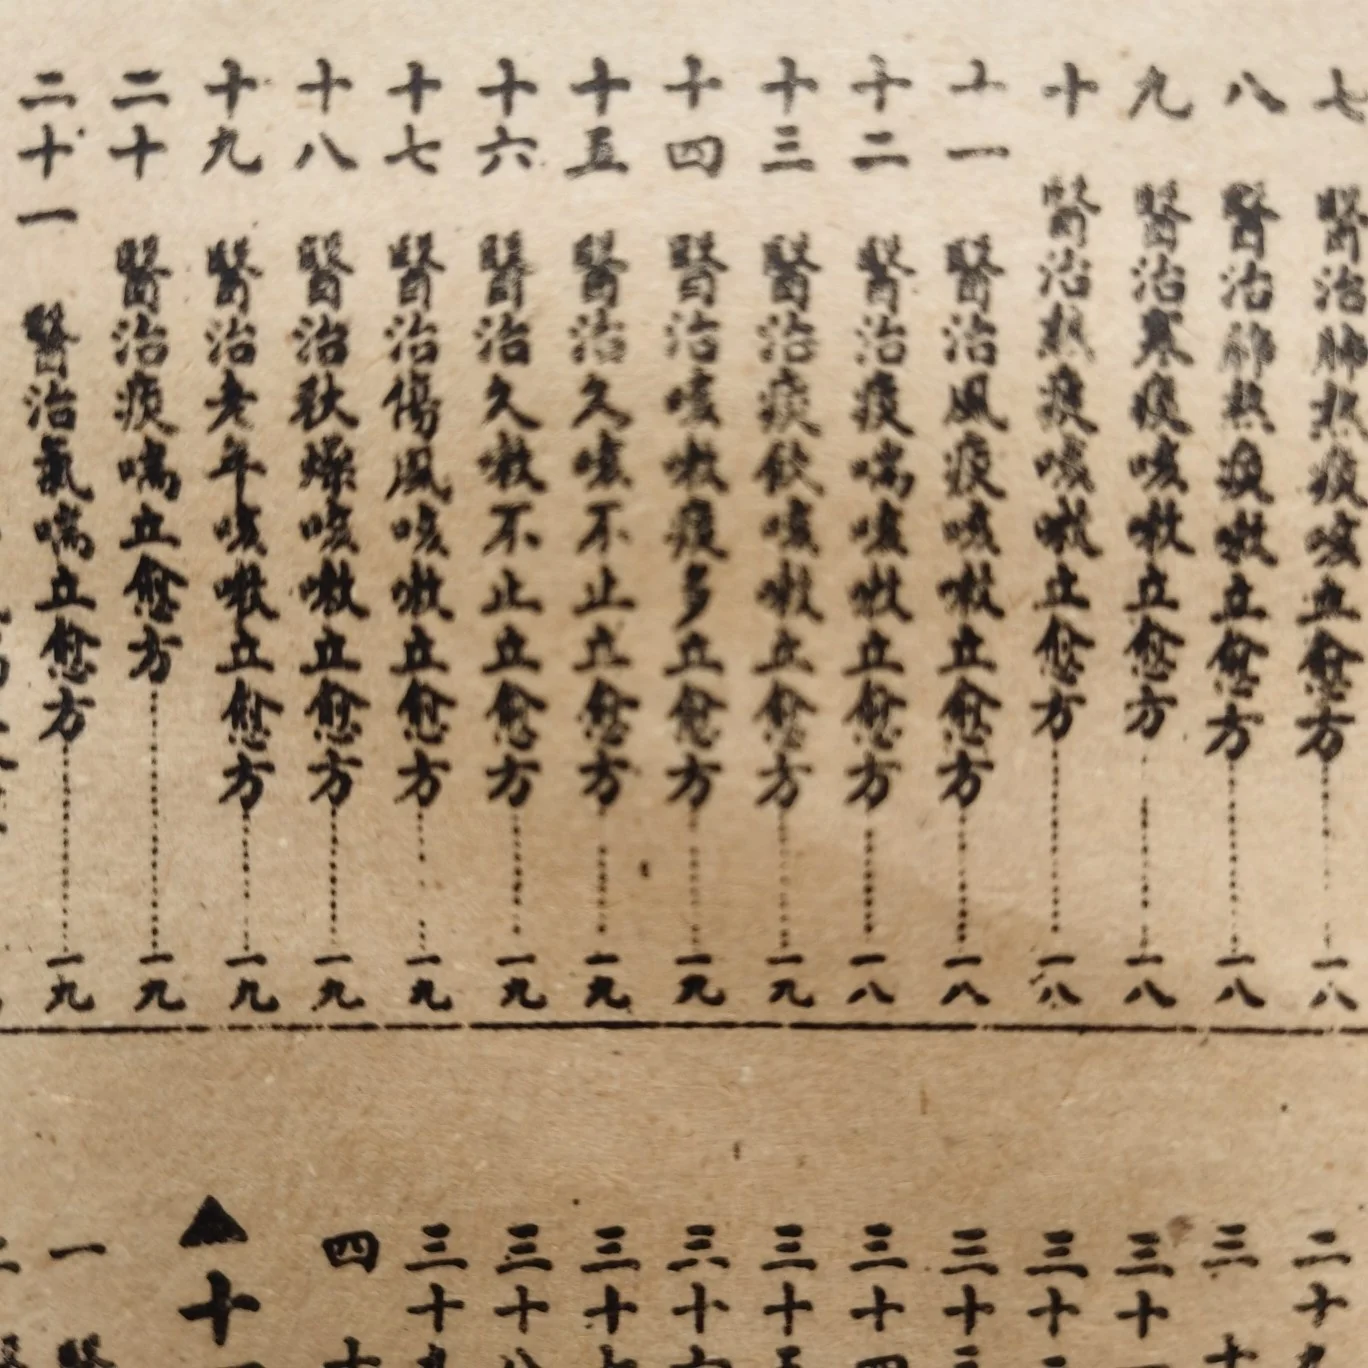 七 醫治肺熱痰咳立愈方 一八
八 醫治肺熱痰嗽立愈方 一八
九 醫治寒痰咳嗽立愈方 一八
十 醫治熱痰咳嗽立愈方 一八
十一 醫治風痰咳嗽立愈方 一八
十二 醫治痰喘咳嗽立愈方 一八
十三 醫治痰飲咳嗽立愈方 一九
十四 醫治咳嗽痰多立愈方 一九
十五 醫治久咳不止立愈方 一九
十六 醫治久嗽不止立愈方 一九
十七 醫治傷風咳嗽立愈方 一九
十八 醫治秋燥咳嗽立愈方 一九
十九 醫治老年咳嗽立愈方 一九
二十 醫治痰喘立愈方 一九
二十一 醫治氣喘立愈方 一九
二十九
三十
三十一
三十二
三十三
三十四
三十五
三十六
三十七
三十八
三十九
四十
▲十
一 醫